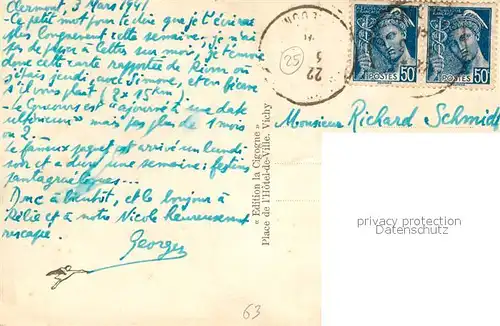 Clermont, 3 Mars 1941
Le petit mot pour te dire que je t'écrirai
plus longuement cette semaine, je n'ai
pas de papier à lettres sur moi, je t'envoie
donc cette carte rapportée de Riom où
j'étais jeudi avec Simone, et en
s'il vous plait (2 x 15 km
Le Concours est "ajourné à une date
ultérieure" mais pas plus de 1 mois
ou 2.
Le fameux paquet est arrivé un lundi
soir et a duré une semaine: festins
pantagruéliques...
Donc à bientôt, et le bonjour à
et à notre Nicole heureusement
rescapée.
Georges
63
« Edition la Cigogne »
Place de l'Hôtel-de-Ville. Vichy
25
22
POSTES 50
POSTES 50
Monsieur Richard Schmidt
privacy protection
Datenschutz